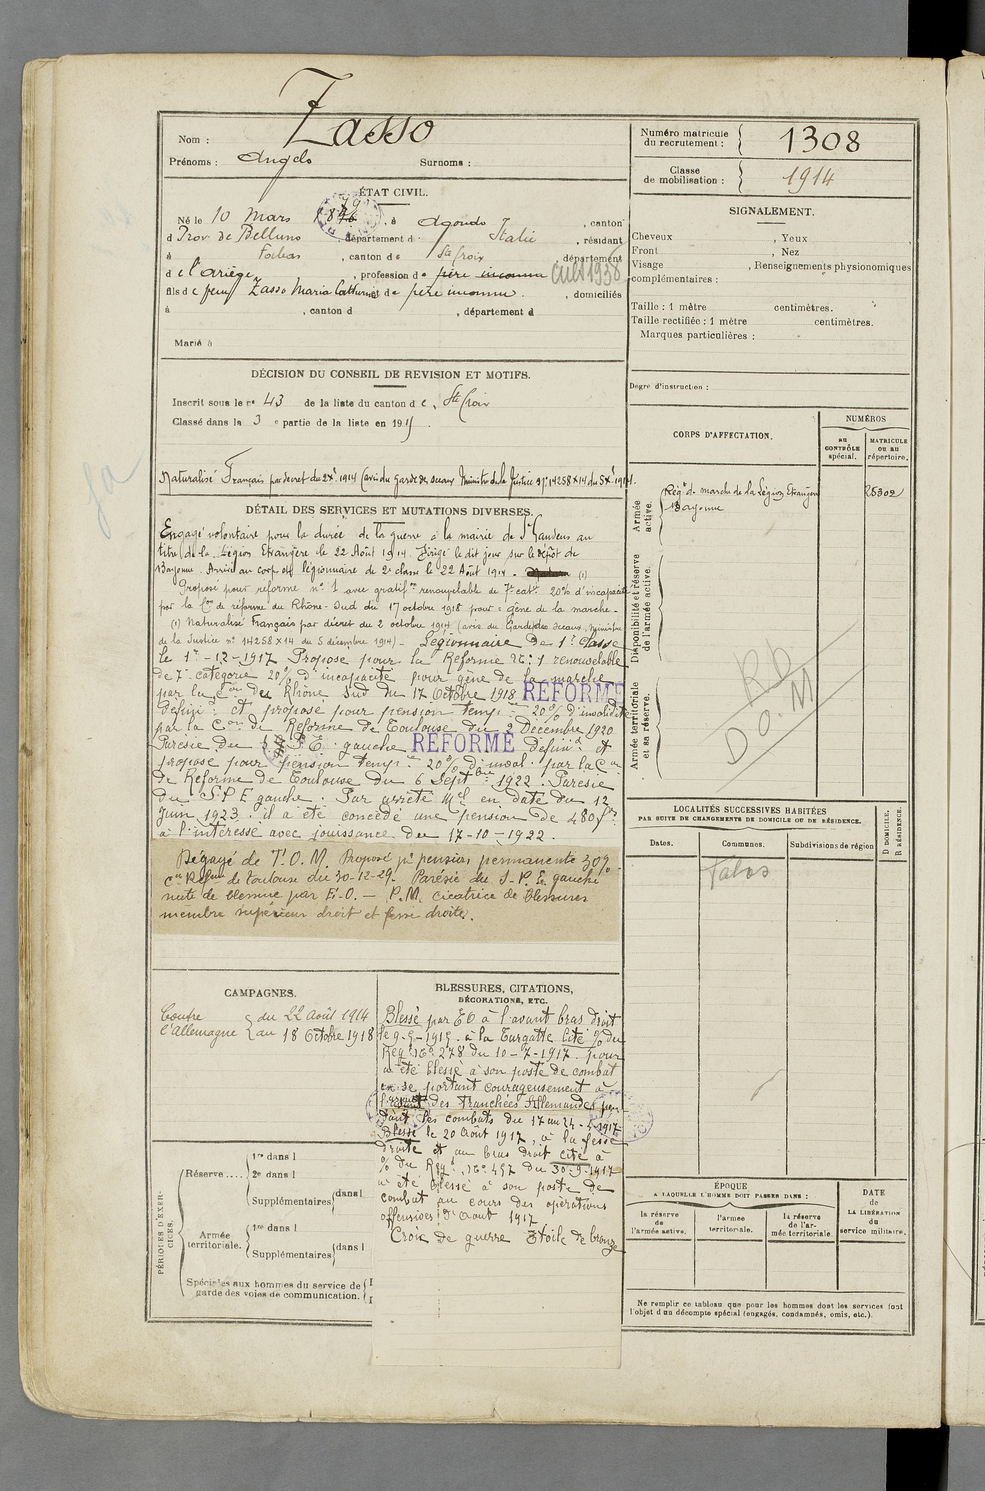 Nom : Zasso
Prénoms : Angelo Surnoms :
Numéro matricule du recrutement : 1308
Classe de mobilisation : 1914
ÉTAT CIVIL.
Né le 10 Mars 18 , à Agordo , canton
d Prov de Belluno , département d Italie , résidant
à Fabas , canton de Ste Croix , département
de l'Ariège , profession de père inconnu cult 1938
fils de Zasso Maria et de père inconnu , domiciliés
à , canton d , département d
Marié à
SIGNALEMENT.
Cheveux , Yeux
Front , Nez
Visage , Renseignements physionomiques
complémentaires :
Taille : 1 mètre centimètres.
Taille rectifiée : 1 mètre centimètres.
Marques particulières :
Degré d'instruction :
DÉCISION DU CONSEIL DE REVISION ET MOTIFS.
Inscrit sous le n° 43 de la liste du canton de Ste Croix
Classé dans la 3 e partie de la liste en 1915.
Naturalisé Français par décret du 2 Xe 1914 (avis du Garde des sceaux Ministre de la Justice n° 14258X14 du 5 Xe 1914).
DÉTAIL DES SERVICES ET MUTATIONS DIVERSES.
Engagé volontaire pour la durée de la guerre à la mairie de St Gaudens au
titre de la Légion Etrangère le 22 Août 1914. Dirigé le dit jour sur le dépôt de
Bayonne. Arrivé au corps et légionnaire de 2e classe le 22 Août 1914. (1)
Proposé pour réforme n° 1 avec gratifon renouvelable de 7e caté 20% d'incapacité
par la Con de réforme du Rhône-Sud du 17 octobre 1918 pour : gêne de la marche -
(1) Naturalisé Français par décret du 2 octobre 1914 (avis du Garde des Sceaux, Ministre
de la Justice n° 14258X14 du 5 décembre 1914) - Légionnaire de 1e Classe
le 1er-12-1917 Proposé pour la Réforme N° 1 renouvelable
de 7e catégorie 20% d'incapacité pour gêne de la marche
par la Con du Rhône Sud du 17 Octobre 1918 REFORMÉ
Défini et proposé pour pension temp. 20% d'invalidité
par la Con de Réforme de Toulouse du 2 Décembre 1920
Parésie du S.P.E. gauche REFORMÉ Défini et
proposé pour pension temp. 20% d'inval. par la Con
de Réforme de Toulouse du 6 Septbre 1922. Parésie
du S.P.E gauche. Par arrêté Mel en date du 12
Juin 1923. il a été concédé une pension de 480 frs
à l'intéressé avec jouissance du 17-10-1922.
Dégagé de T.O.M. Proposé pr pension permanente 30%
Cn Réfme de Toulouse du 30-12-29. Parésie du S.P.E. gauche
suite de blessure par E.O. - P.M. cicatrice de blessures
membre supérieur droit et fesse droite.
CORPS D'AFFECTATION.
NUMÉROS
AU CONTRÔLE spécial.
MATRICULE OU AU répertoire.
Armée active.
Régt de marche de la Légion Etrangère 25302
Bayonne
Disponibilité et réserve de l'armée active.
Armée territoriale et sa réserve.
RD
DOM
LOCALITÉS SUCCESSIVES HABITÉES
PAR SUITE DE CHANGEMENTS DE DOMICILE OU DE RÉSIDENCE.
Dates. Communes. Subdivisions de région
D DOMICILE.
R RÉSIDENCE.
Fabas
CAMPAGNES.
Contre l'Allemagne { du 22 Août 1914
au 18 Octobre 1918
BLESSURES, CITATIONS,
DÉCORATIONS, ETC.
Blessé par EO à l'avant bras droit
le 9-5-1915 à la Targette Cité % du
Régt N° 278 du 10-7-1917. pour
a été blessé à son poste de combat
en se portant courageusement à
l'assaut des Tranchées Allemandes pen-
dant les combats du 17 au 22-4-1917
Blessé le 20 Août 1917, à la fesse
droite et au bras droit cité à
% du Régt N° 457 du 30-9-1917
a été blessé à son poste de
combat au cours des opérations
offensives d'Août 1917
Croix de guerre Etoile de bronze
PÉRIODES D'EXERCICES.
Réserve....
1re dans l
2e dans l
Supplémentaires dans l
Armée territoriale.
1re dans l
Supplémentaires dans l
Spéciales aux hommes du service de
garde des voies de communication.
ÉPOQUE
A LAQUELLE L'HOMME DOIT PASSER DANS :
la réserve de l'armée active.
l'armée territoriale.
la réserve de l'armée territoriale.
DATE
de
LA LIBÉRATION
du
service militaire.
Ne remplir ce tableau que pour les hommes dont les services font
l'objet d'un décompte spécial (engagés, condamnés, omis, etc.).